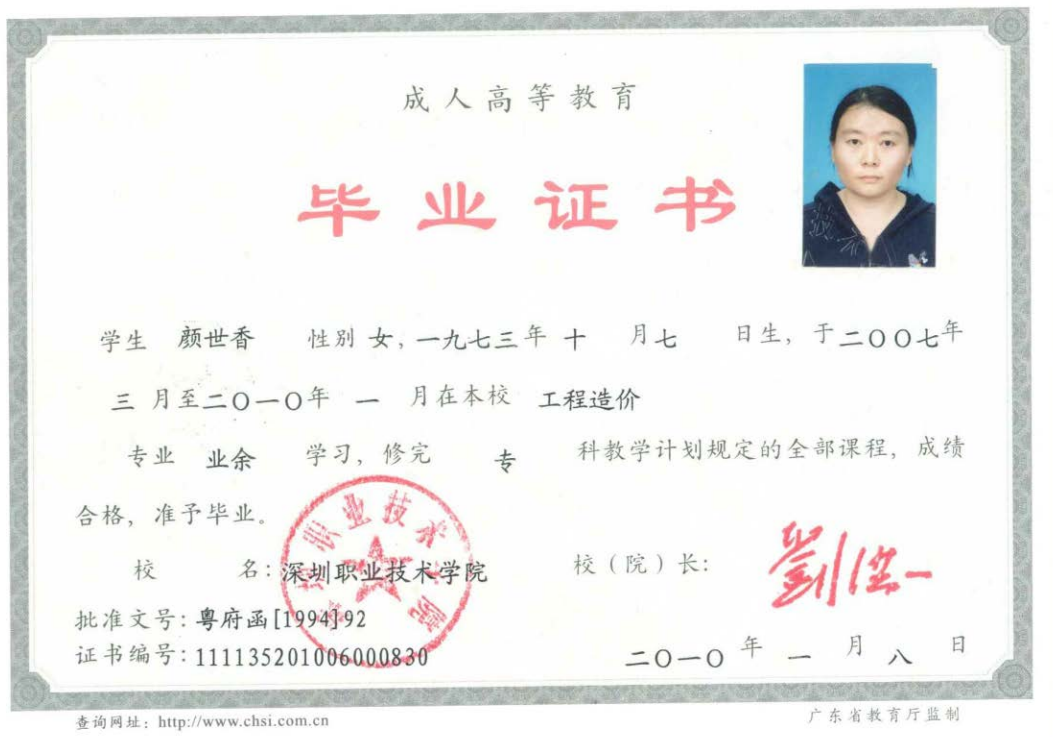 成人高等教育
毕业证书
学生 颜世香 性别 女，一九七三年 十 月七 日生，于二〇〇七年
三 月至二〇一〇年 一 月在本校 工程造价
专业 业余 学习，修完 专 科教学计划规定的全部课程，成绩
合格，准予毕业。
校 名：深圳职业技术学院 校（院）长：劉洪一
批准文号：粤府函[1994]92
证书编号：111135201006000830 二〇一〇 年 一 月 八 日
查询网址：http://www.chsi.com.cn 广东省教育厅监制